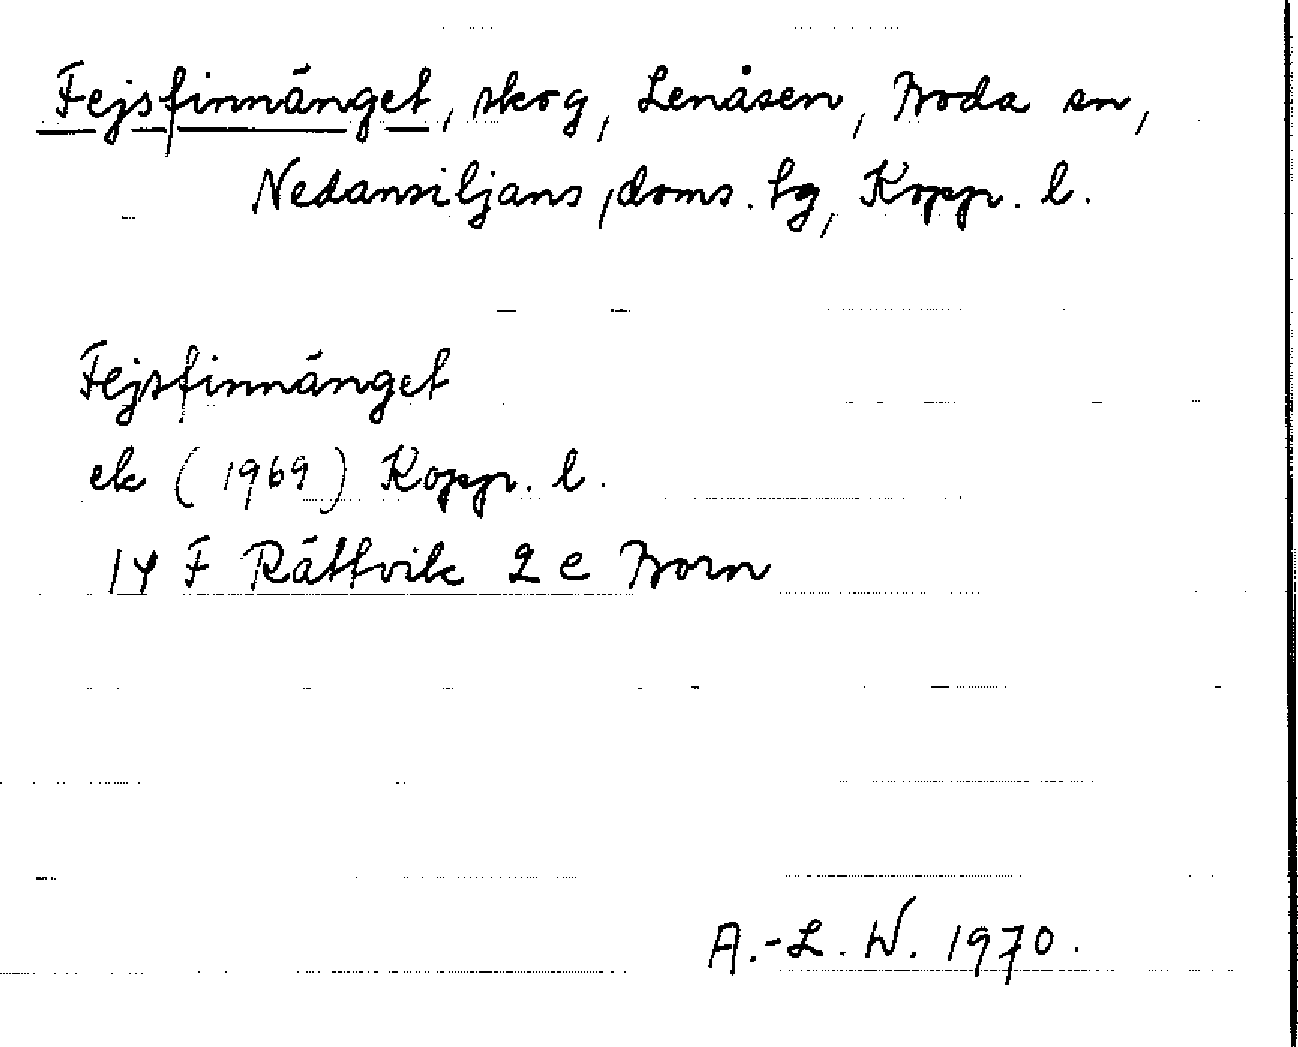 Fejsfinnänget, skog, Lenåsen, Boda sn,
Nedansiljans, doms. tg, Kopp. l.
Fejsfinnänget
ek (1969) Kopp. l.
14 F Rättvik 2 e Born
A.-L. W. 1970.